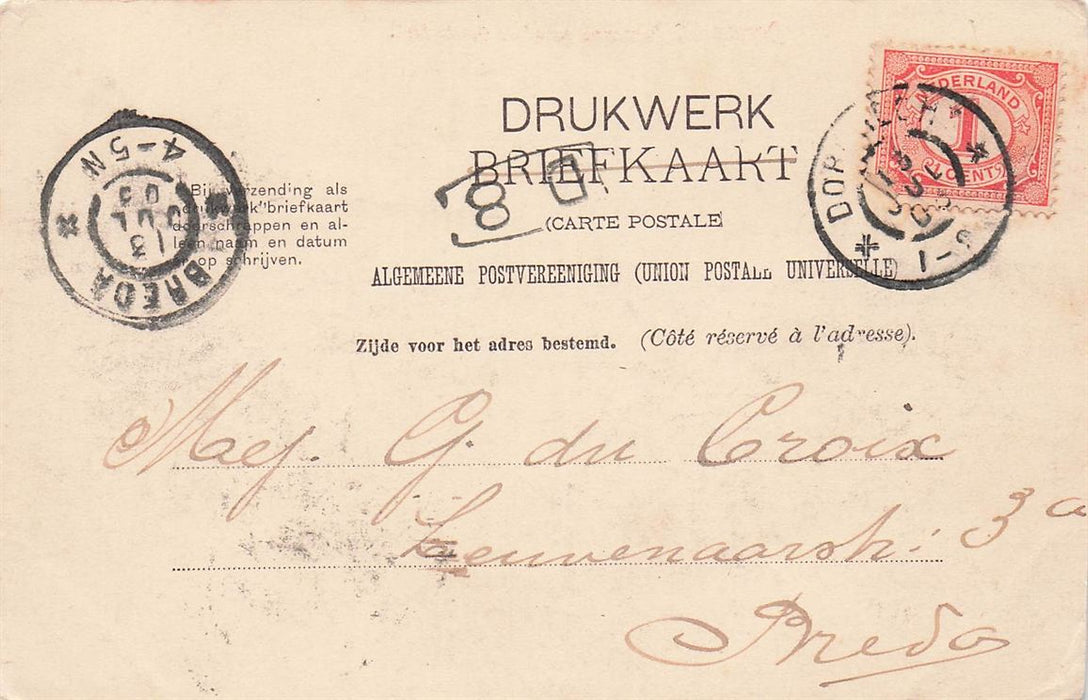 NEDERLAND
1
CENT
DRUKWERK
BRIEFKAART
(CARTE POSTALE
ALGEMEENE POSTVEREENIGING (UNION POSTALE UNIVERSELLE)
Zijde voor het adres bestemd. (Côté réservé à l'adresse).
Bij verzending als
"drukwerk" briefkaart
doorschrappen en al-
leen naam en datum
op schrijven.
BREDA
13 JUL 03
4-5N
DORDRECHT
13 JUL 03
D
87
Mej. G. du Croix
Leuvenaarstr: 3a
Breda